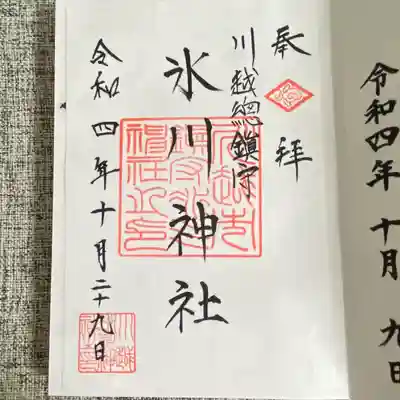 奉拝
川越總鎮守
氷川神社
令和四年十月二十九日
令和四年十月 九日